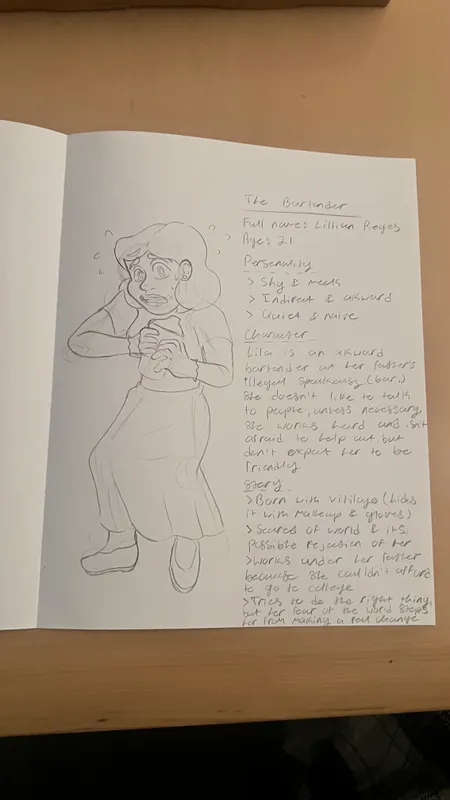 The Bartender
Full name: Lillian Reyes
Age: 21
Personality
> Shy & meek
> Indirect & akward
> Quiet & naive
Character
Lila is an akward
bartender at her father's
illegal speakeasy (bar.)
She doesn't like to talk
to people, unless necessary,
She works hard and isn't
afraid to help out but
don't expect her to be
friendly
Story
> Born with vitilago (hides
it with makeup & gloves)
> Scared of world & its
possible rejection of her
> Works under her father
because she couldn't afford
to go to college
> Tries to do the right thing,
but her fear of the world stops
her from making a real change